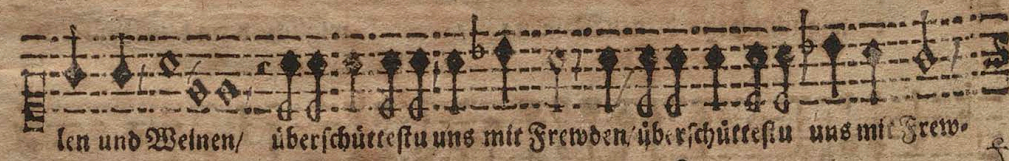 len und Weinen/ überſchütteſtu uns mit Frewden/ überſchütteſtu uns mit Frew⸗